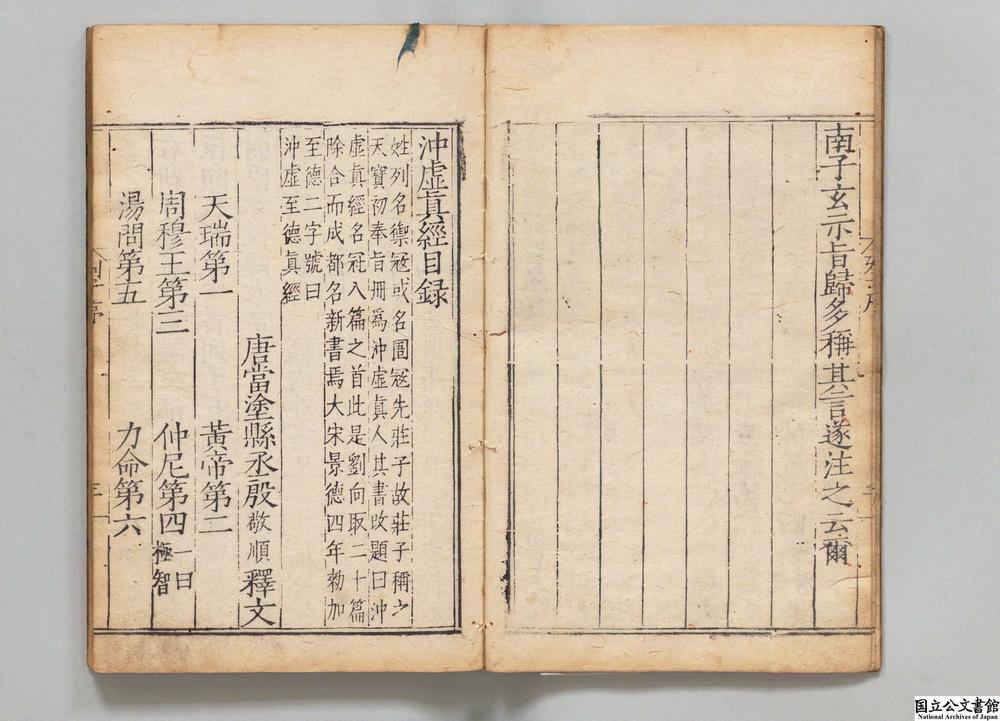 南子玄示旨歸多稱其言遂注之云爾
沖虛真經目録
姓列名禦宼或名圄宼先莊子故莊子稱之
天寶初奉旨冊爲沖虛真人其書改題曰沖
虛真經名冠八篇之首此是劉向取二十篇
除合而成都名新書焉大宋景德四年勑加
至德二字號曰
沖虛至德真經
唐當塗縣丞殷敬順釋文
天瑞第一 黃帝第二
周穆王第三 仲尼第四一曰極智
湯問第五 力命第六
国立公文書館
National Archives of Japan